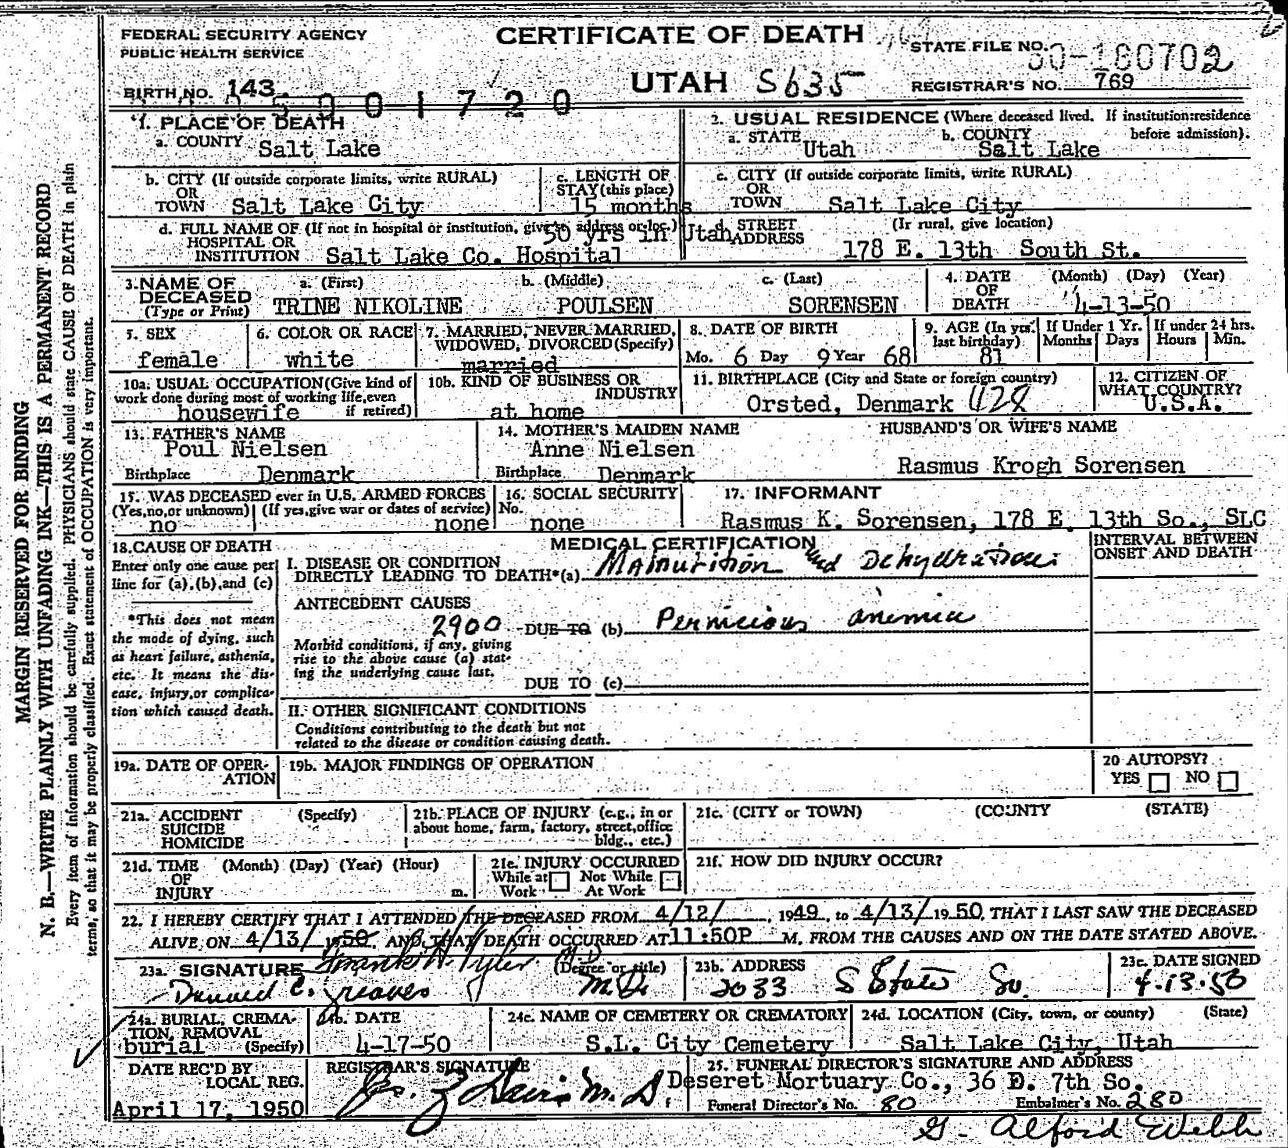 FEDERAL SECURITY AGENCY
PUBLIC HEALTH SERVICE
CERTIFICATE OF DEATH
STATE FILE NO. 50-180702
BIRTH NO. 143
5001720
UTAH S635
REGISTRAR'S NO. 769
1. PLACE OF DEATH
a. COUNTY Salt Lake
2. USUAL RESIDENCE (Where deceased lived. If institution:residence before admission).
a. STATE Utah
b. COUNTY Salt Lake
b. CITY (If outside corporate limits, write RURAL)
OR
TOWN Salt Lake City
c. LENGTH OF
STAY (this place)
15 months
50 yrs in Utah
c. CITY (If outside corporate limits, write RURAL)
OR
TOWN Salt Lake City
d. FULL NAME OF (If not in hospital or institution, give st. address or loc.)
HOSPITAL OR
INSTITUTION Salt Lake Co. Hospital
d. STREET (If rural, give location)
ADDRESS 178 E. 13th South St.
3. NAME OF
DECEASED
(Type or Print)
a. (First) b. (Middle) c. (Last)
TRINE NIKOLINE POULSEN SORENSEN
4. DATE (Month) (Day) (Year)
OF
DEATH 4-13-50
5. SEX
female
6. COLOR OR RACE
white
7. MARRIED, NEVER MARRIED,
WIDOWED, DIVORCED (Specify)
married
8. DATE OF BIRTH
Mo. 6 Day 9 Year 68
9. AGE (In yrs. last birthday)
81
If Under 1 Yr.
Months Days
If under 24 hrs.
Hours Min.
10a. USUAL OCCUPATION (Give kind of
work done during most of working life, even
if retired)
housewife
10b. KIND OF BUSINESS OR
INDUSTRY
at home
11. BIRTHPLACE (City and State or foreign country)
Orsted, Denmark 428
12. CITIZEN OF
WHAT COUNTRY?
U.S.A.
13. FATHER'S NAME
Poul Nielsen
Birthplace Denmark
14. MOTHER'S MAIDEN NAME
Anne Nielsen
Birthplace Denmark
HUSBAND'S OR WIFE'S NAME
Rasmus Krogh Sorensen
15. WAS DECEASED ever in U.S. ARMED FORCES
(Yes, no, or unknown) (If yes, give war or dates of service)
no none
16. SOCIAL SECURITY
No.
none
17. INFORMANT
Rasmus K. Sorensen, 178 E. 13th So., SLC
18. CAUSE OF DEATH
Enter only one cause per
line for (a), (b), and (c)
*This does not mean
the mode of dying, such
as heart failure, asthenia,
etc. It means the dis-
ease, injury, or complica-
tion which caused death.
MEDICAL CERTIFICATION
INTERVAL BETWEEN
ONSET AND DEATH
I. DISEASE OR CONDITION
DIRECTLY LEADING TO DEATH*(a) Malnurition and Dehydration
ANTECEDENT CAUSES
2900 DUE TO (b) Pernicious anemia
Morbid conditions, if any, giving
rise to the above cause (a) stat-
ing the underlying cause last.
DUE TO (c)
II. OTHER SIGNIFICANT CONDITIONS
Conditions contributing to the death but not
related to the disease or condition causing death.
19a. DATE OF OPER-
ATION
19b. MAJOR FINDINGS OF OPERATION
20 AUTOPSY?
YES NO
21a. ACCIDENT (Specify)
SUICIDE
HOMICIDE
21b. PLACE OF INJURY (e.g., in or
about home, farm, factory, street, office
bldg., etc.)
21c. (CITY or TOWN) (COUNTY) (STATE)
21d. TIME (Month) (Day) (Year) (Hour)
OF
INJURY m.
21e. INJURY OCCURRED
While at Not While
Work At Work
21f. HOW DID INJURY OCCUR?
22. I HEREBY CERTIFY THAT I ATTENDED THE DECEASED FROM 4/12/ 1949, to 4/13/ 1950, THAT I LAST SAW THE DECEASED
ALIVE ON 4/13/ 1950, AND THAT DEATH OCCURRED AT 11:50P M. FROM THE CAUSES AND ON THE DATE STATED ABOVE.
23a. SIGNATURE Frank H. Tyler MD (Degree or title)
C. Greaves M.D.
23b. ADDRESS
2033 S State So.
23c. DATE SIGNED
4.13.50
24a. BURIAL, CREMA-
TION, REMOVAL
burial (Specify)
24b. DATE
4-17-50
24c. NAME OF CEMETERY OR CREMATORY
S.L. City Cemetery
24d. LOCATION (City, town, or county) (State)
Salt Lake City, Utah
DATE REC'D BY
LOCAL REG.
April 17, 1950
REGISTRAR'S SIGNATURE
Davis M.D.
25. FUNERAL DIRECTOR'S SIGNATURE AND ADDRESS
Deseret Mortuary Co., 36 E. 7th So.
Funeral Director's No. 80 Embalmer's No. 280
G. Alford Webb
MARGIN RESERVED FOR BINDING
N. B.—WRITE PLAINLY WITH UNFADING INK—THIS IS A PERMANENT RECORD
Every item of information should be carefully supplied. PHYSICIANS should state CAUSE OF DEATH in plain
terms, so that it may be properly classified. Exact statement of OCCUPATION is very important.